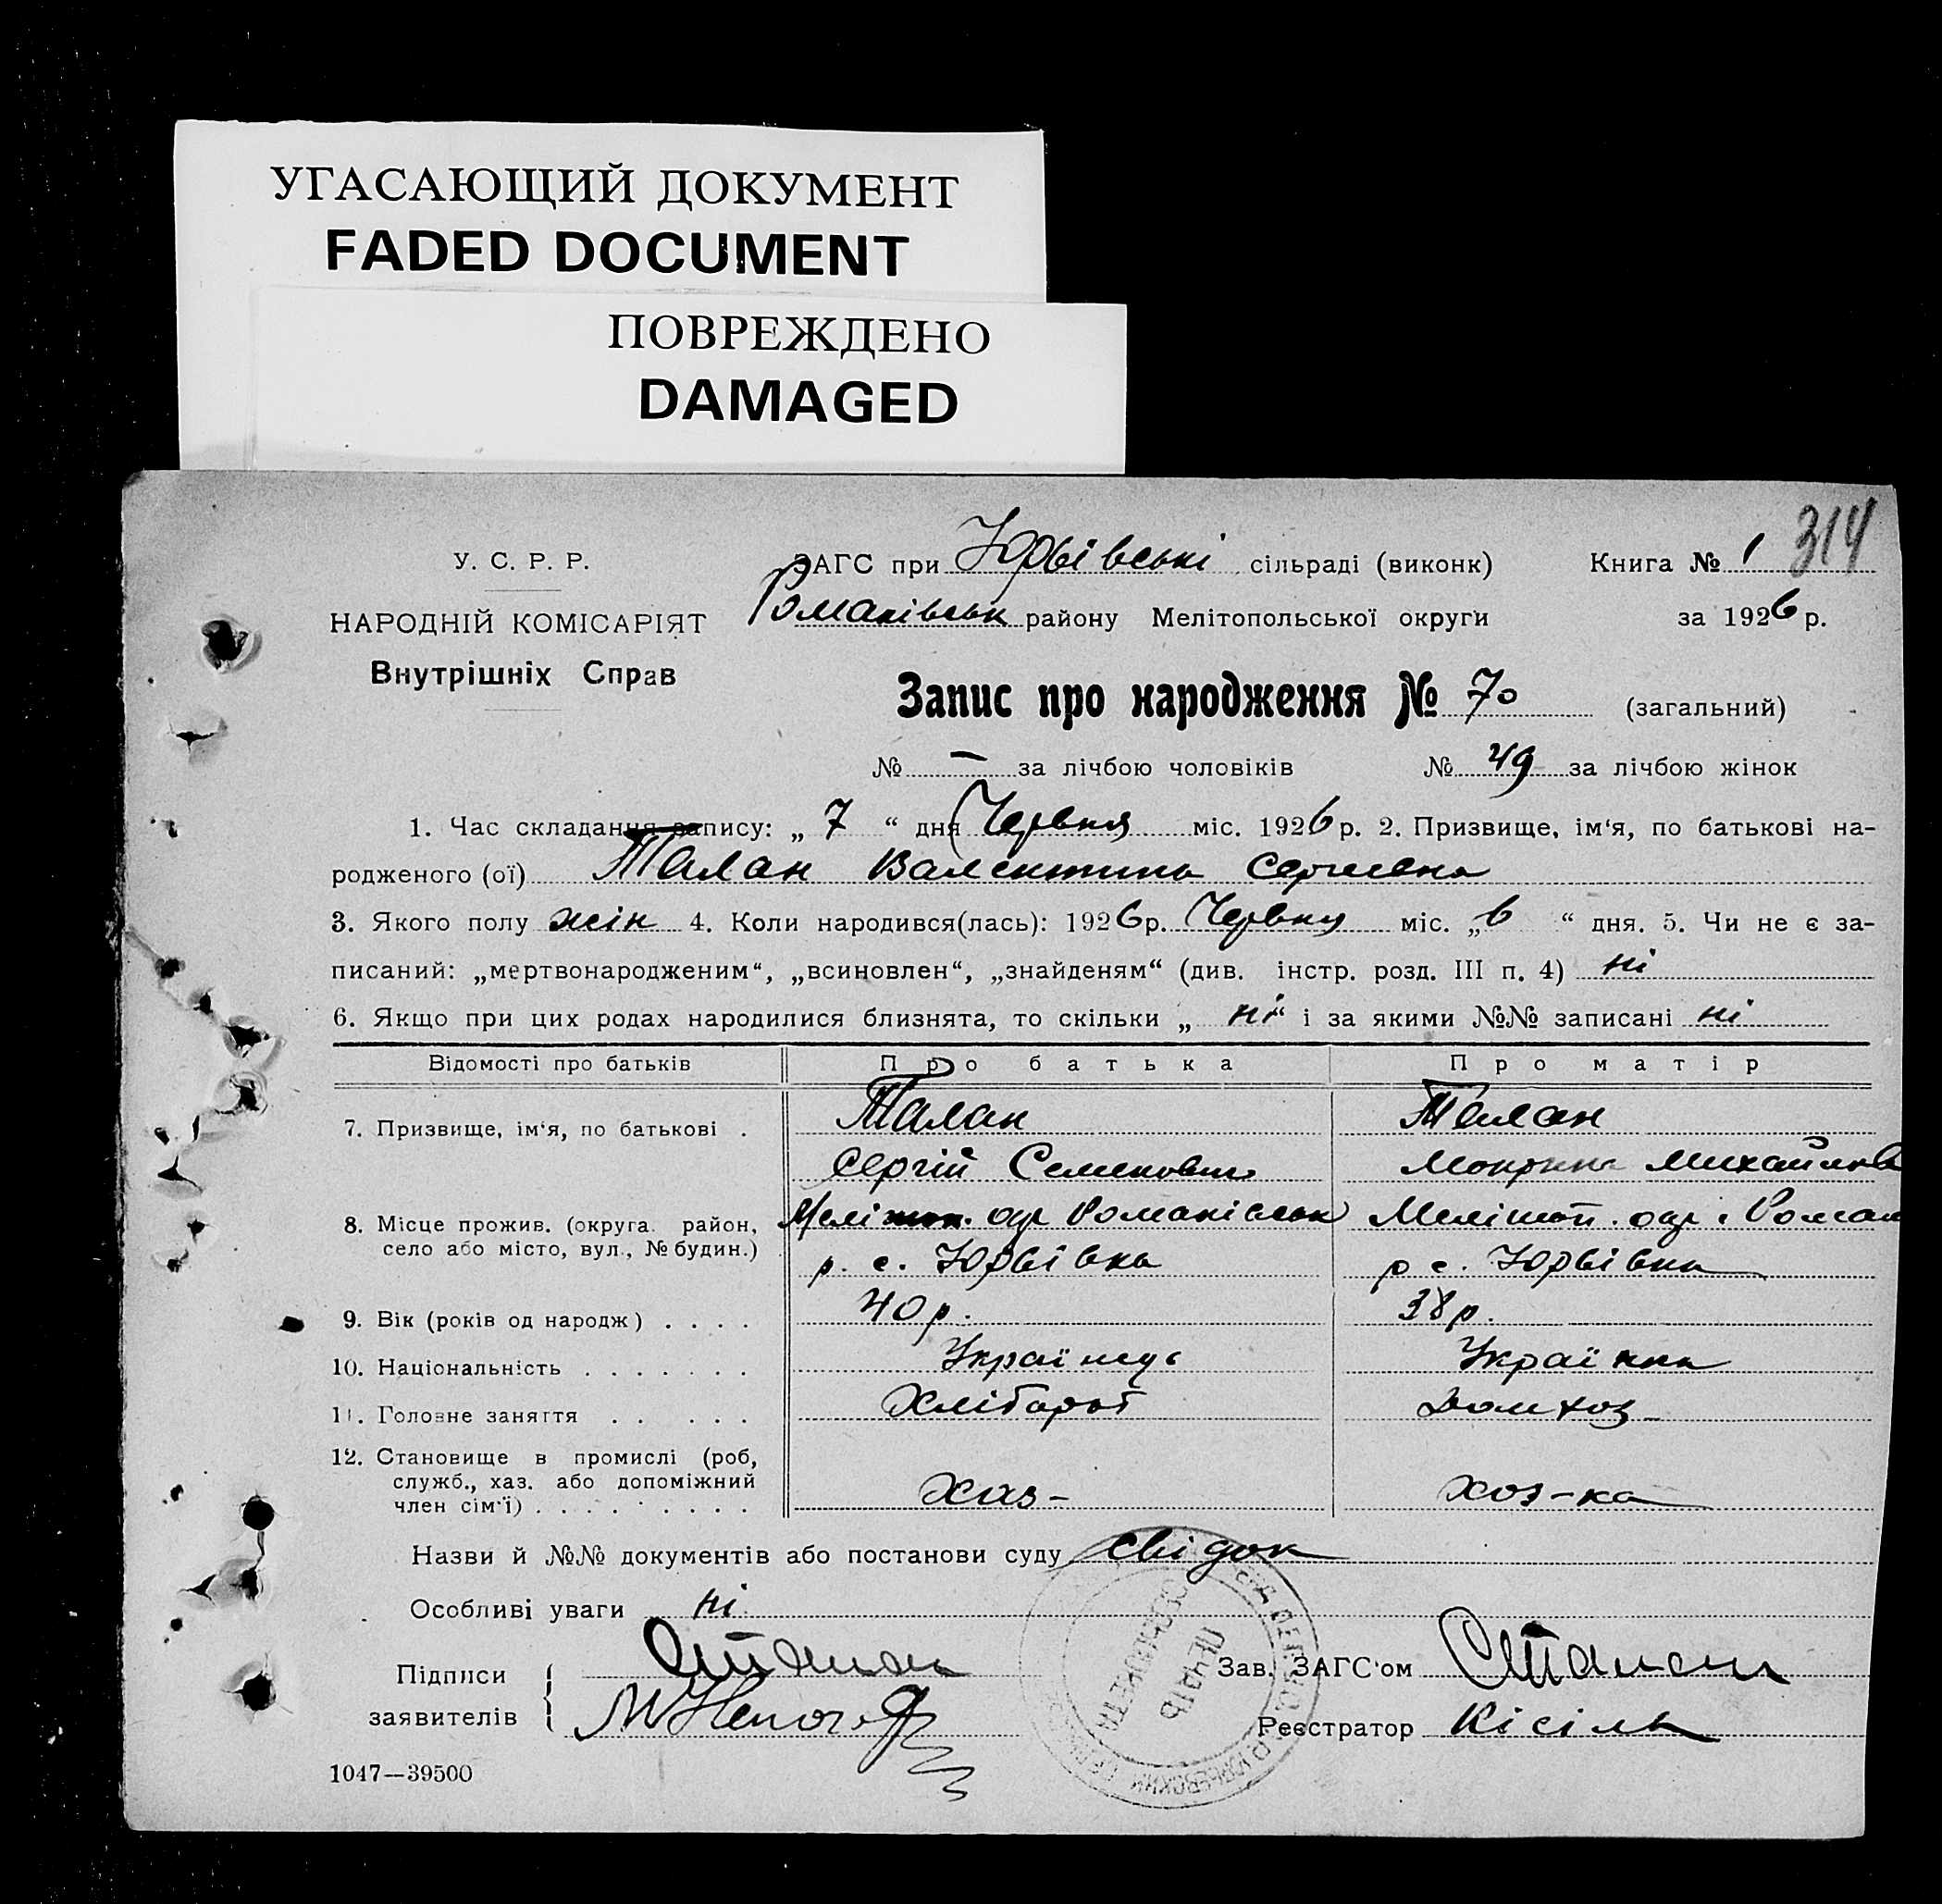 УГАСАЮЩИЙ ДОКУМЕНТ
FADED DOCUMENT
ПОВРЕЖДЕНО
DAMAGED
314
У. С. Р. Р.
НАРОДНІЙ КОМІСАРІЯТ
Внутрішніх Справ
ЗАГС при Юрьівські сільраді (виконк) Книга № 1
Романівськ району Мелітопольської округи за 1926 р.
Запис про народження № 70 (загальний)
№ — за лічбою чоловіків № 49 за лічбою жінок
1. Час складання запису: „ 7 “ дня Червня міс. 1926 р. 2. Призвище, ім‘я, по батькові на-
родженого (ої) Талан Валентина Сергиевна
3. Якого полу жін 4. Коли народився(лась): 1926 р. Червня міс. „ 6 “ дня. 5. Чи не є за-
писаний: „мертвонародженим“, „всиновлен“, „знайденям“ (див. інстр. розд. III п. 4) ні
6. Якщо при цих родах народилися близнята, то скільки „ ні “ і за якими №№ записані ні
Відомості про батьків Про батька Про матір
7. Призвище, ім‘я, по батькові . Талан Талан
Сергій Семенович Мокрина Михайлов
8. Місце прожив. (округа. район, Меліт. окр Романівськ Меліт. окр. Роман
село або місто, вул., № будин.) р. с. Юрьівка р с. Юрьівка
9. Вік (років од народж) . . . . 40 р. 38 р.
10. Національність . . . . . . . Українець Українка
11. Головне заняття . . . . . . Хлібороб Домхоз
12. Становище в промислі (роб,
служб., хаз. або допоміжний
член сім‘ї) . . . . . . . . . Хаз- Хоз-ка
Назви й №№ документів або постанови суду Свідок
Особливі уваги ні
Підписи
заявителів
Зав. ЗАГС‘ом
Реєстратор Кісіль
1047—39500
ПЕЧАТЬ